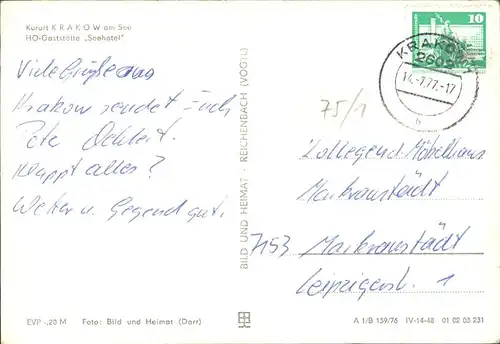 Kurort KRAKOW am See
HO-Gaststätte „Seehotel"
Viele Grüße aus
Krakow sendet Euch
klappt alles?
Wetter u. Gegend gut.
BILD UND HEIMAT · REICHENBACH (VOGTL)
10
KRAKOW
2602
14.-7.77.-17
h
75/1
Kollegen d. Möbelhaus
Markranstädt
7153 Markranstädt
Leipzigerstr. 1
EVP -,20 M Foto: Bild und Heimat (Darr)
A 1/B 159/76 IV-14-48 01 02 03 231